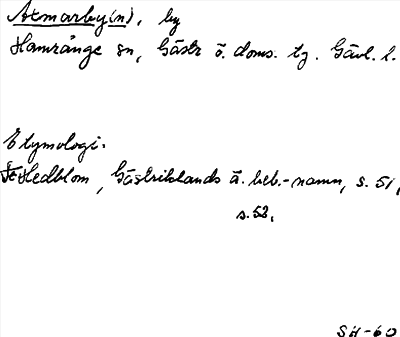 Axmarby(n), by
Hamrånge sn, Gästr ö. doms. tg. Gävl. l.
Etymologi.
F Hedblom, Gästriklands ä. beb.-namn, s. 51,
s. 53,
SH-60